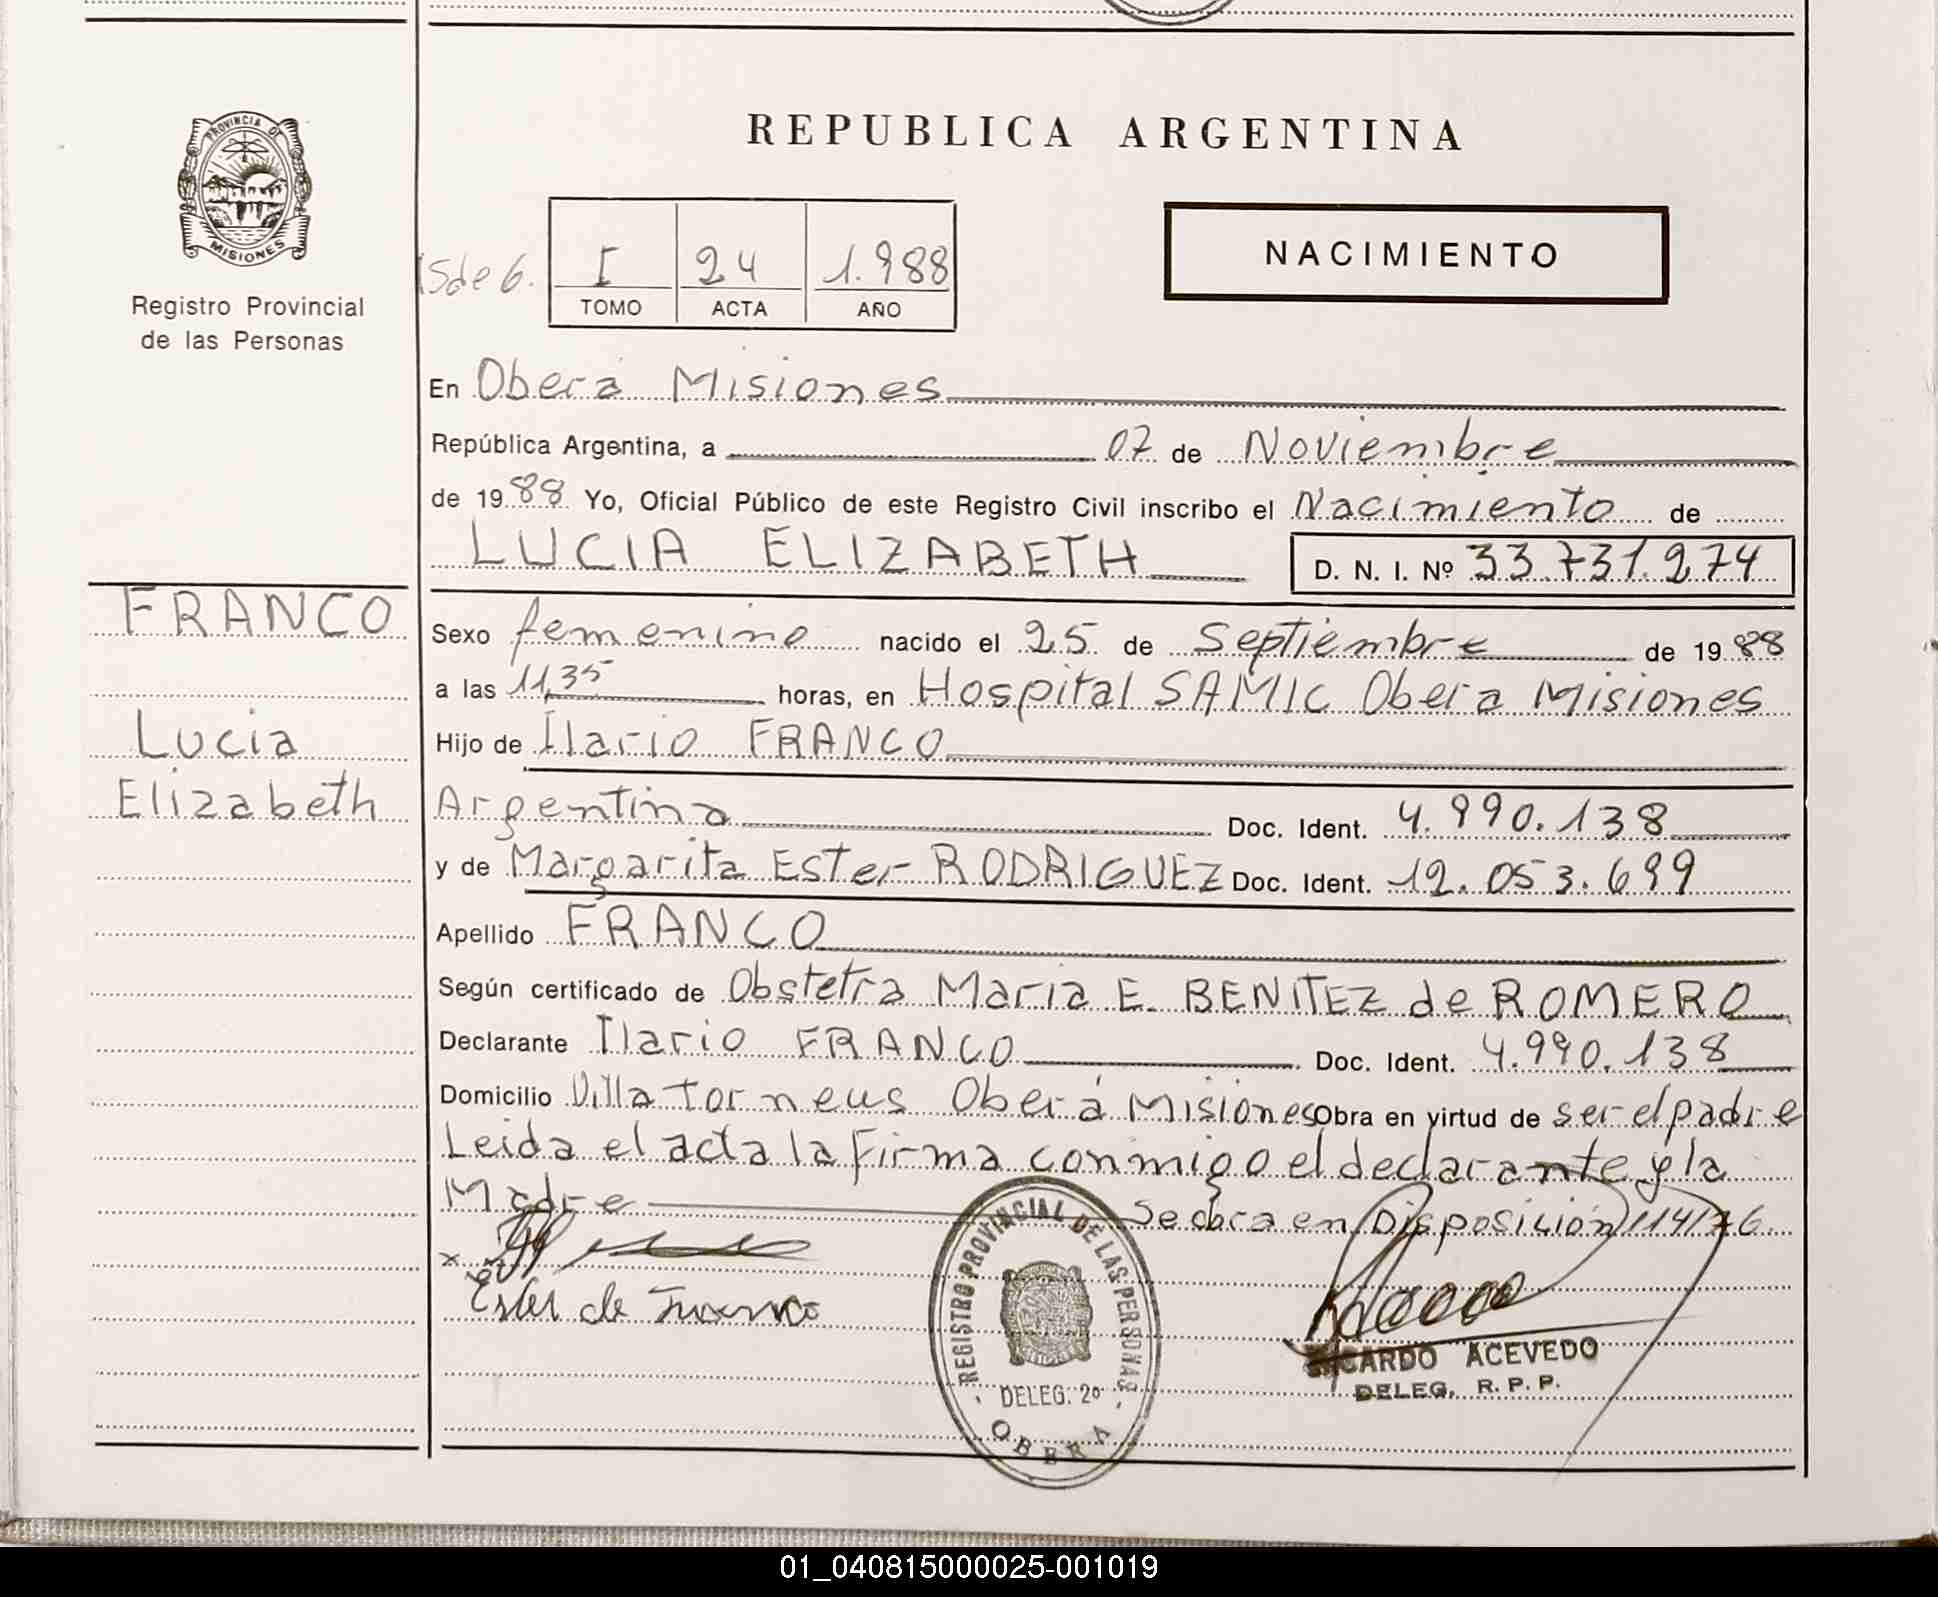 REPUBLICA ARGENTINA
PROVINCIA DE
MISIONES
Registro Provincial
de las Personas
5de 6.
I 24 1.988
TOMO ACTA AÑO
NACIMIENTO
En Oberá Misiones
República Argentina, a 07 de Noviembre
de 1988 Yo, Oficial Público de este Registro Civil inscribo el Nacimiento de
LUCIA ELIZABETH D. N. I. Nº 33.731.274
FRANCO
Lucia
Elizabeth
Sexo femenino nacido el 25 de Septiembre de 1988
a las 11,35 horas, en Hospital SAMIC Obera Misiones
Hijo de Ilario FRANCO
Argentina Doc. Ident. 4.990.138
y de Margarita Ester RODRIGUEZ Doc. Ident. 12.053.699
Apellido FRANCO
Según certificado de Obstetra Maria E. BENITEZ de ROMERO
Declarante Ilario FRANCO Doc. Ident. 4.990.138
Domicilio Villa Torneus Oberá Misiones obra en virtud de ser el padre
Leida el acta la firma conmigo el declarante y la
Madre Se obra en Disposición 114/76.
x
Ester de Franco
REGISTRO PROVINCIAL DE LAS PERSONAS
DELEG. 2º
OBERA
RICARDO ACEVEDO
DELEG. R. P. P.
01_040815000025-001019